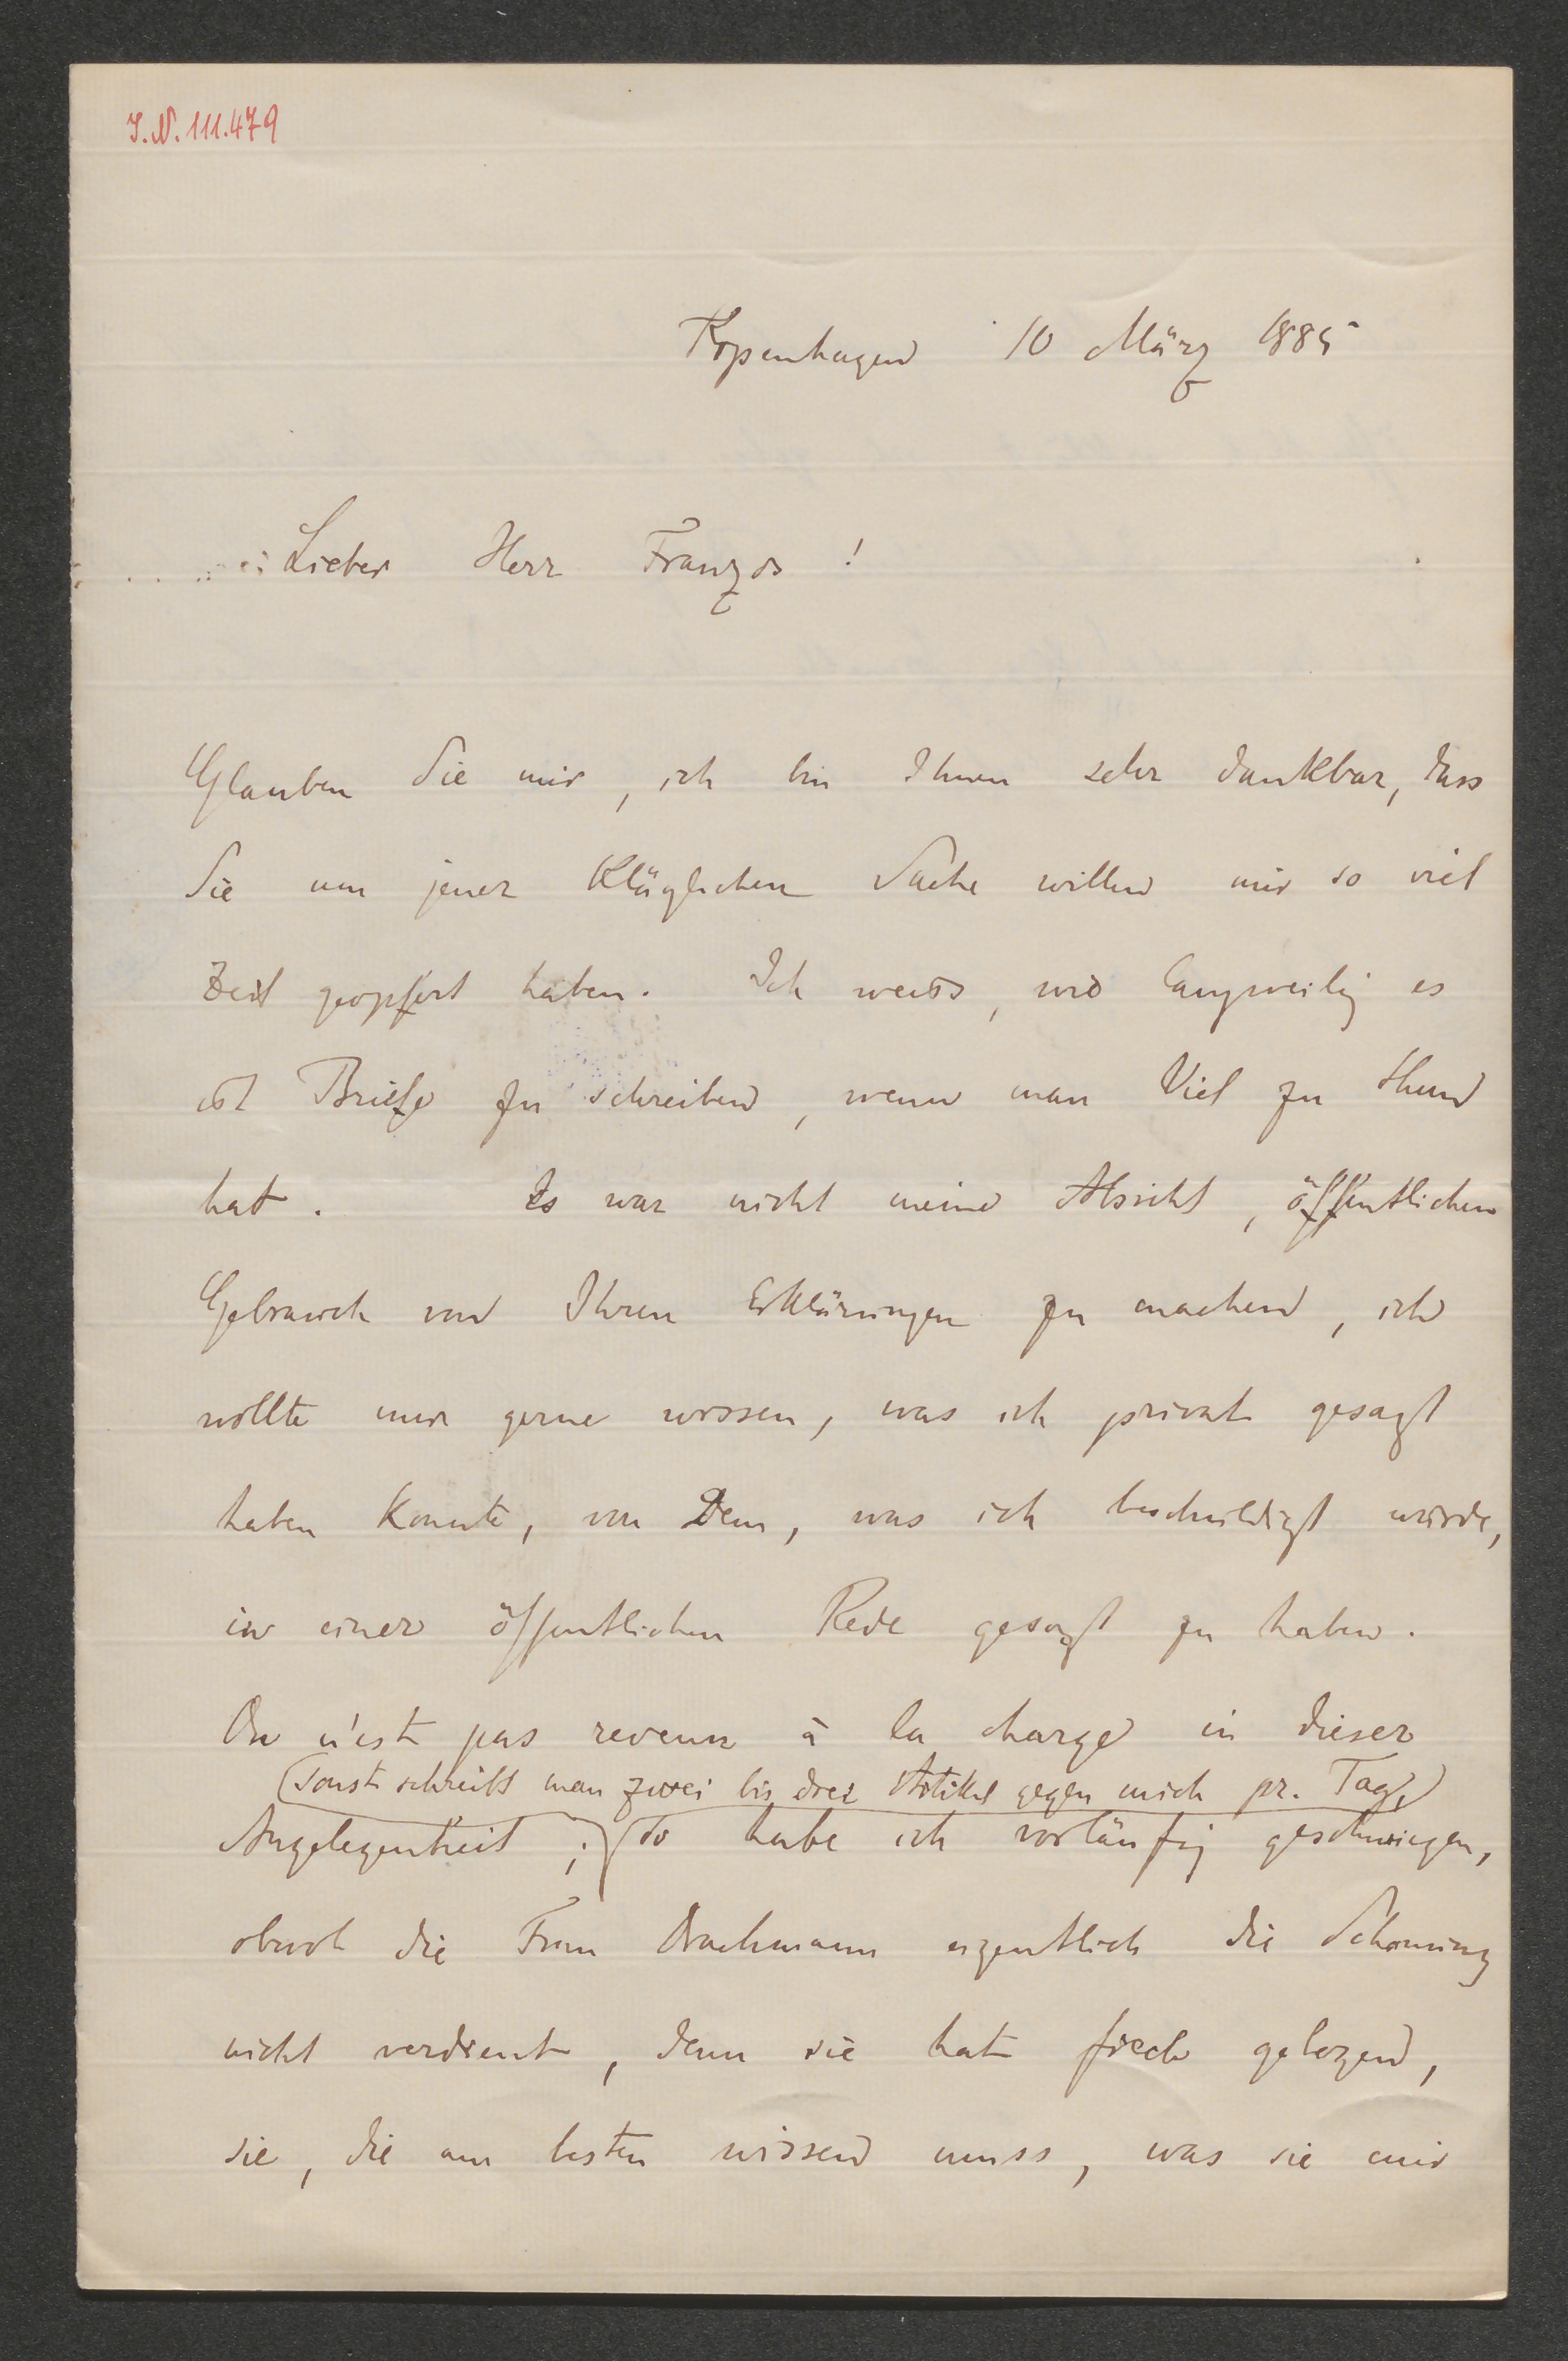 I.N. 111.479
Kopenhagen 10 März 1885
Lieber Herr Franzos!
Glauben Sie mir, ich bin Ihnen sehr dankbar, dass
Sie um jener kläglichen Sache willen mir so viel
Zeit geopfert haben. Ich weiss, wie langweilig es
ist Briefe zu schreiben, wenn man Viel zu thun
hat. Es war nicht meine Absicht, öffentlichen
Gebrauch von Ihren Erklärungen zu machen, ich
wollte nur gerne wissen, was ich privat gesagt
haben konnte, von Dem, was ich beschuldigt würde,
in einer öffentlichen Rede gesagt zu haben.
On n'est pas revenu à la charge in dieser
(sonst schreibt man zwei bis drei Artikel gegen mich pr. Tag,)
Angelegenheit; so habe ich vorläufig geschwiegen,
obwol die Frau Drachmann eigentlich die Schonung
nicht verdient, denn sie hat frech gelogen,
sie, die am besten wissen muss, was sie mir